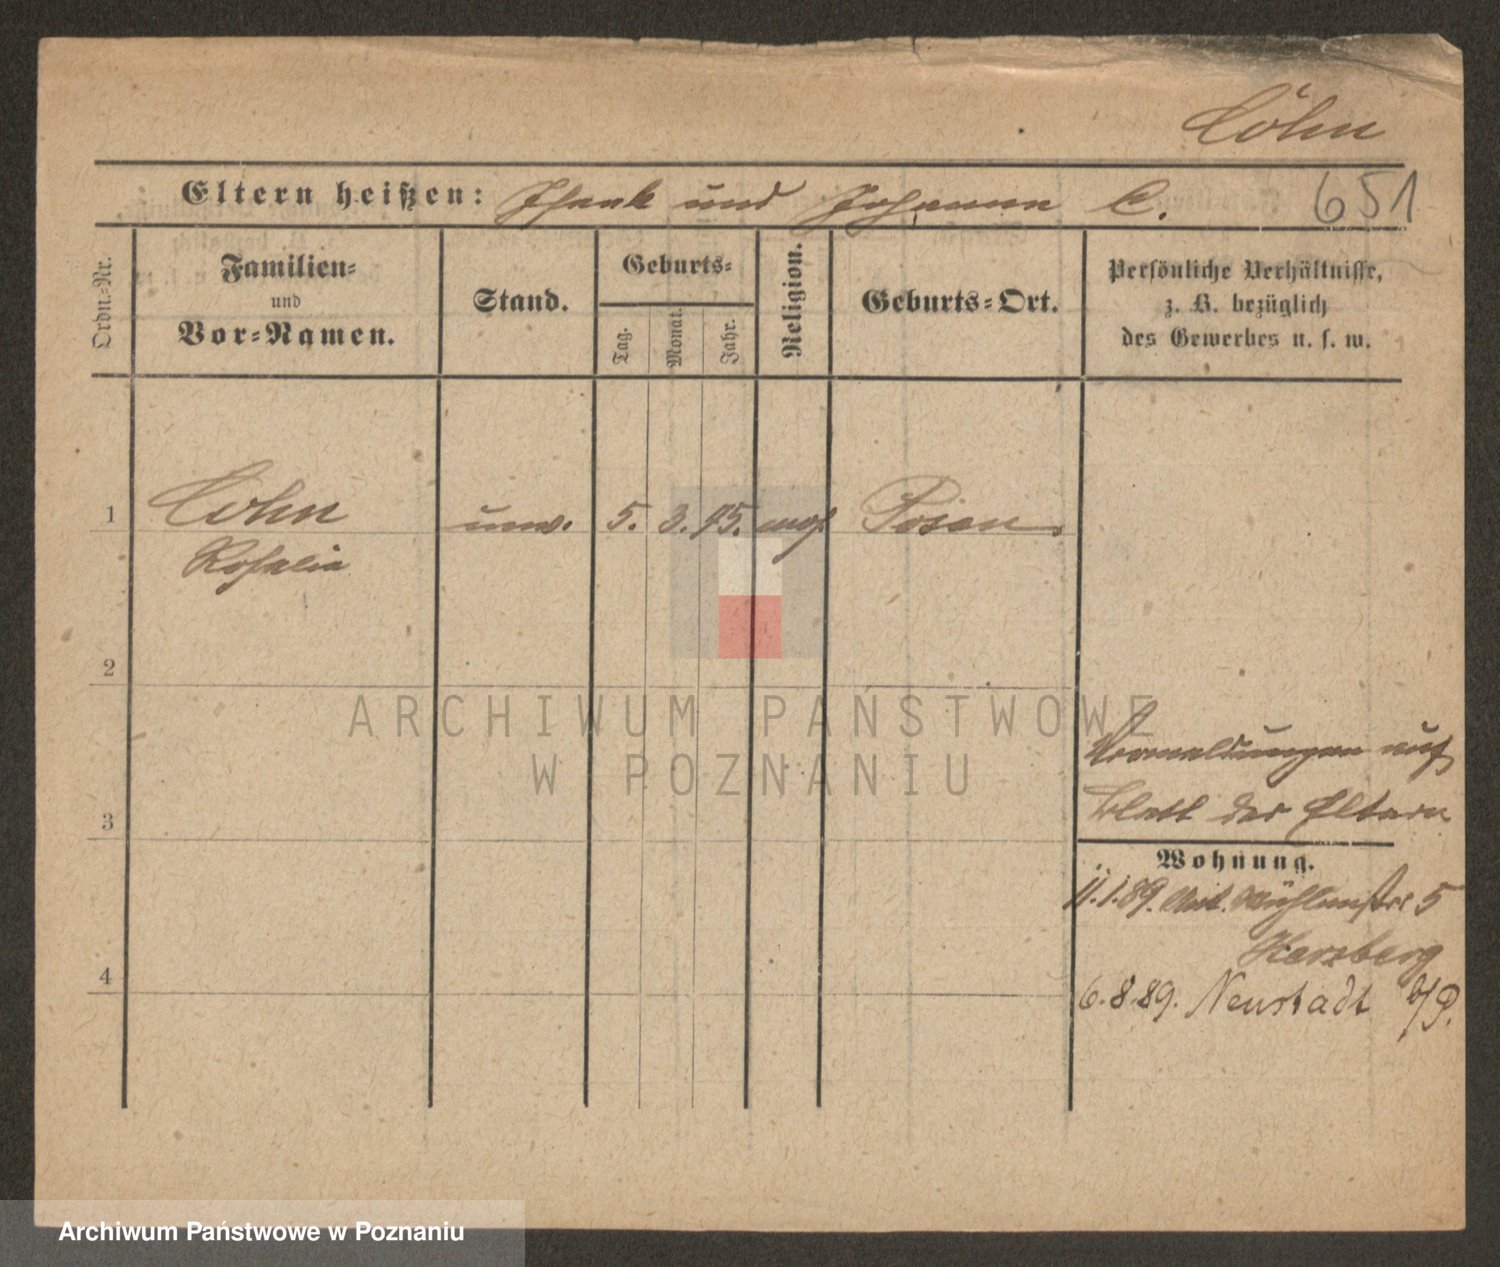 Cohn
Eltern heißen: Isaak und Johanna C.
651
Ordn.-Nr.
Familien-
und
Vor-Namen.
Stand.
Geburts-
Tag.
Monat.
Jahr.
Religion.
Geburts-Ort.
Persönliche Verhältnisse,
z. B. bezüglich
des Gewerbes u. s. w.
1
Cohn
Rosalia
unv.
5.
3.
75.
mos.
Posen
2
ARCHIWUM PAŃSTWOWE
W POZNANIU
Anmeldungen auf
Blatt der Eltern
3
Wohnung.
11.1.89. Mühlenstr 5
Herzberg
4
6.8.89. Neustadt b/P.
Archiwum Państwowe w Poznaniu